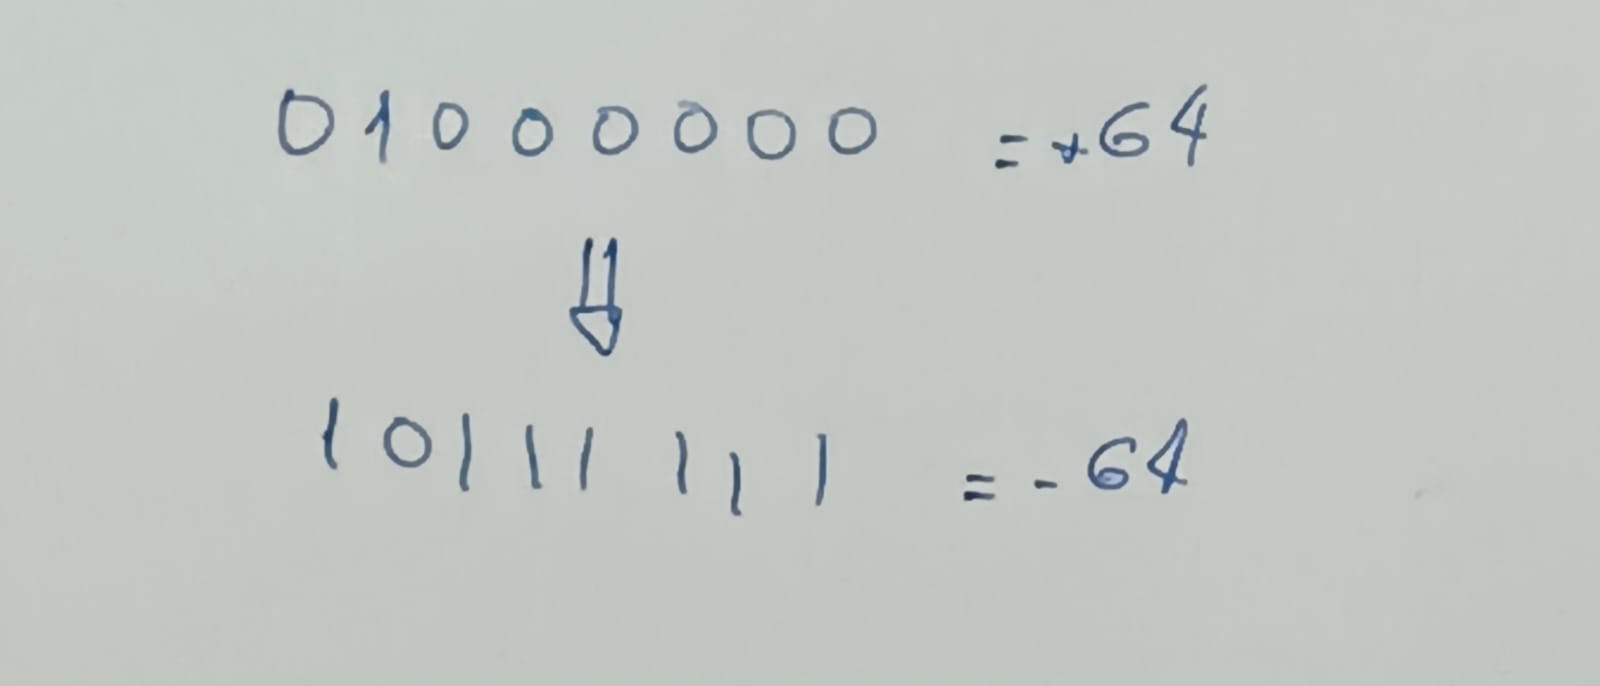 01000000 = +64
10111111 = -64